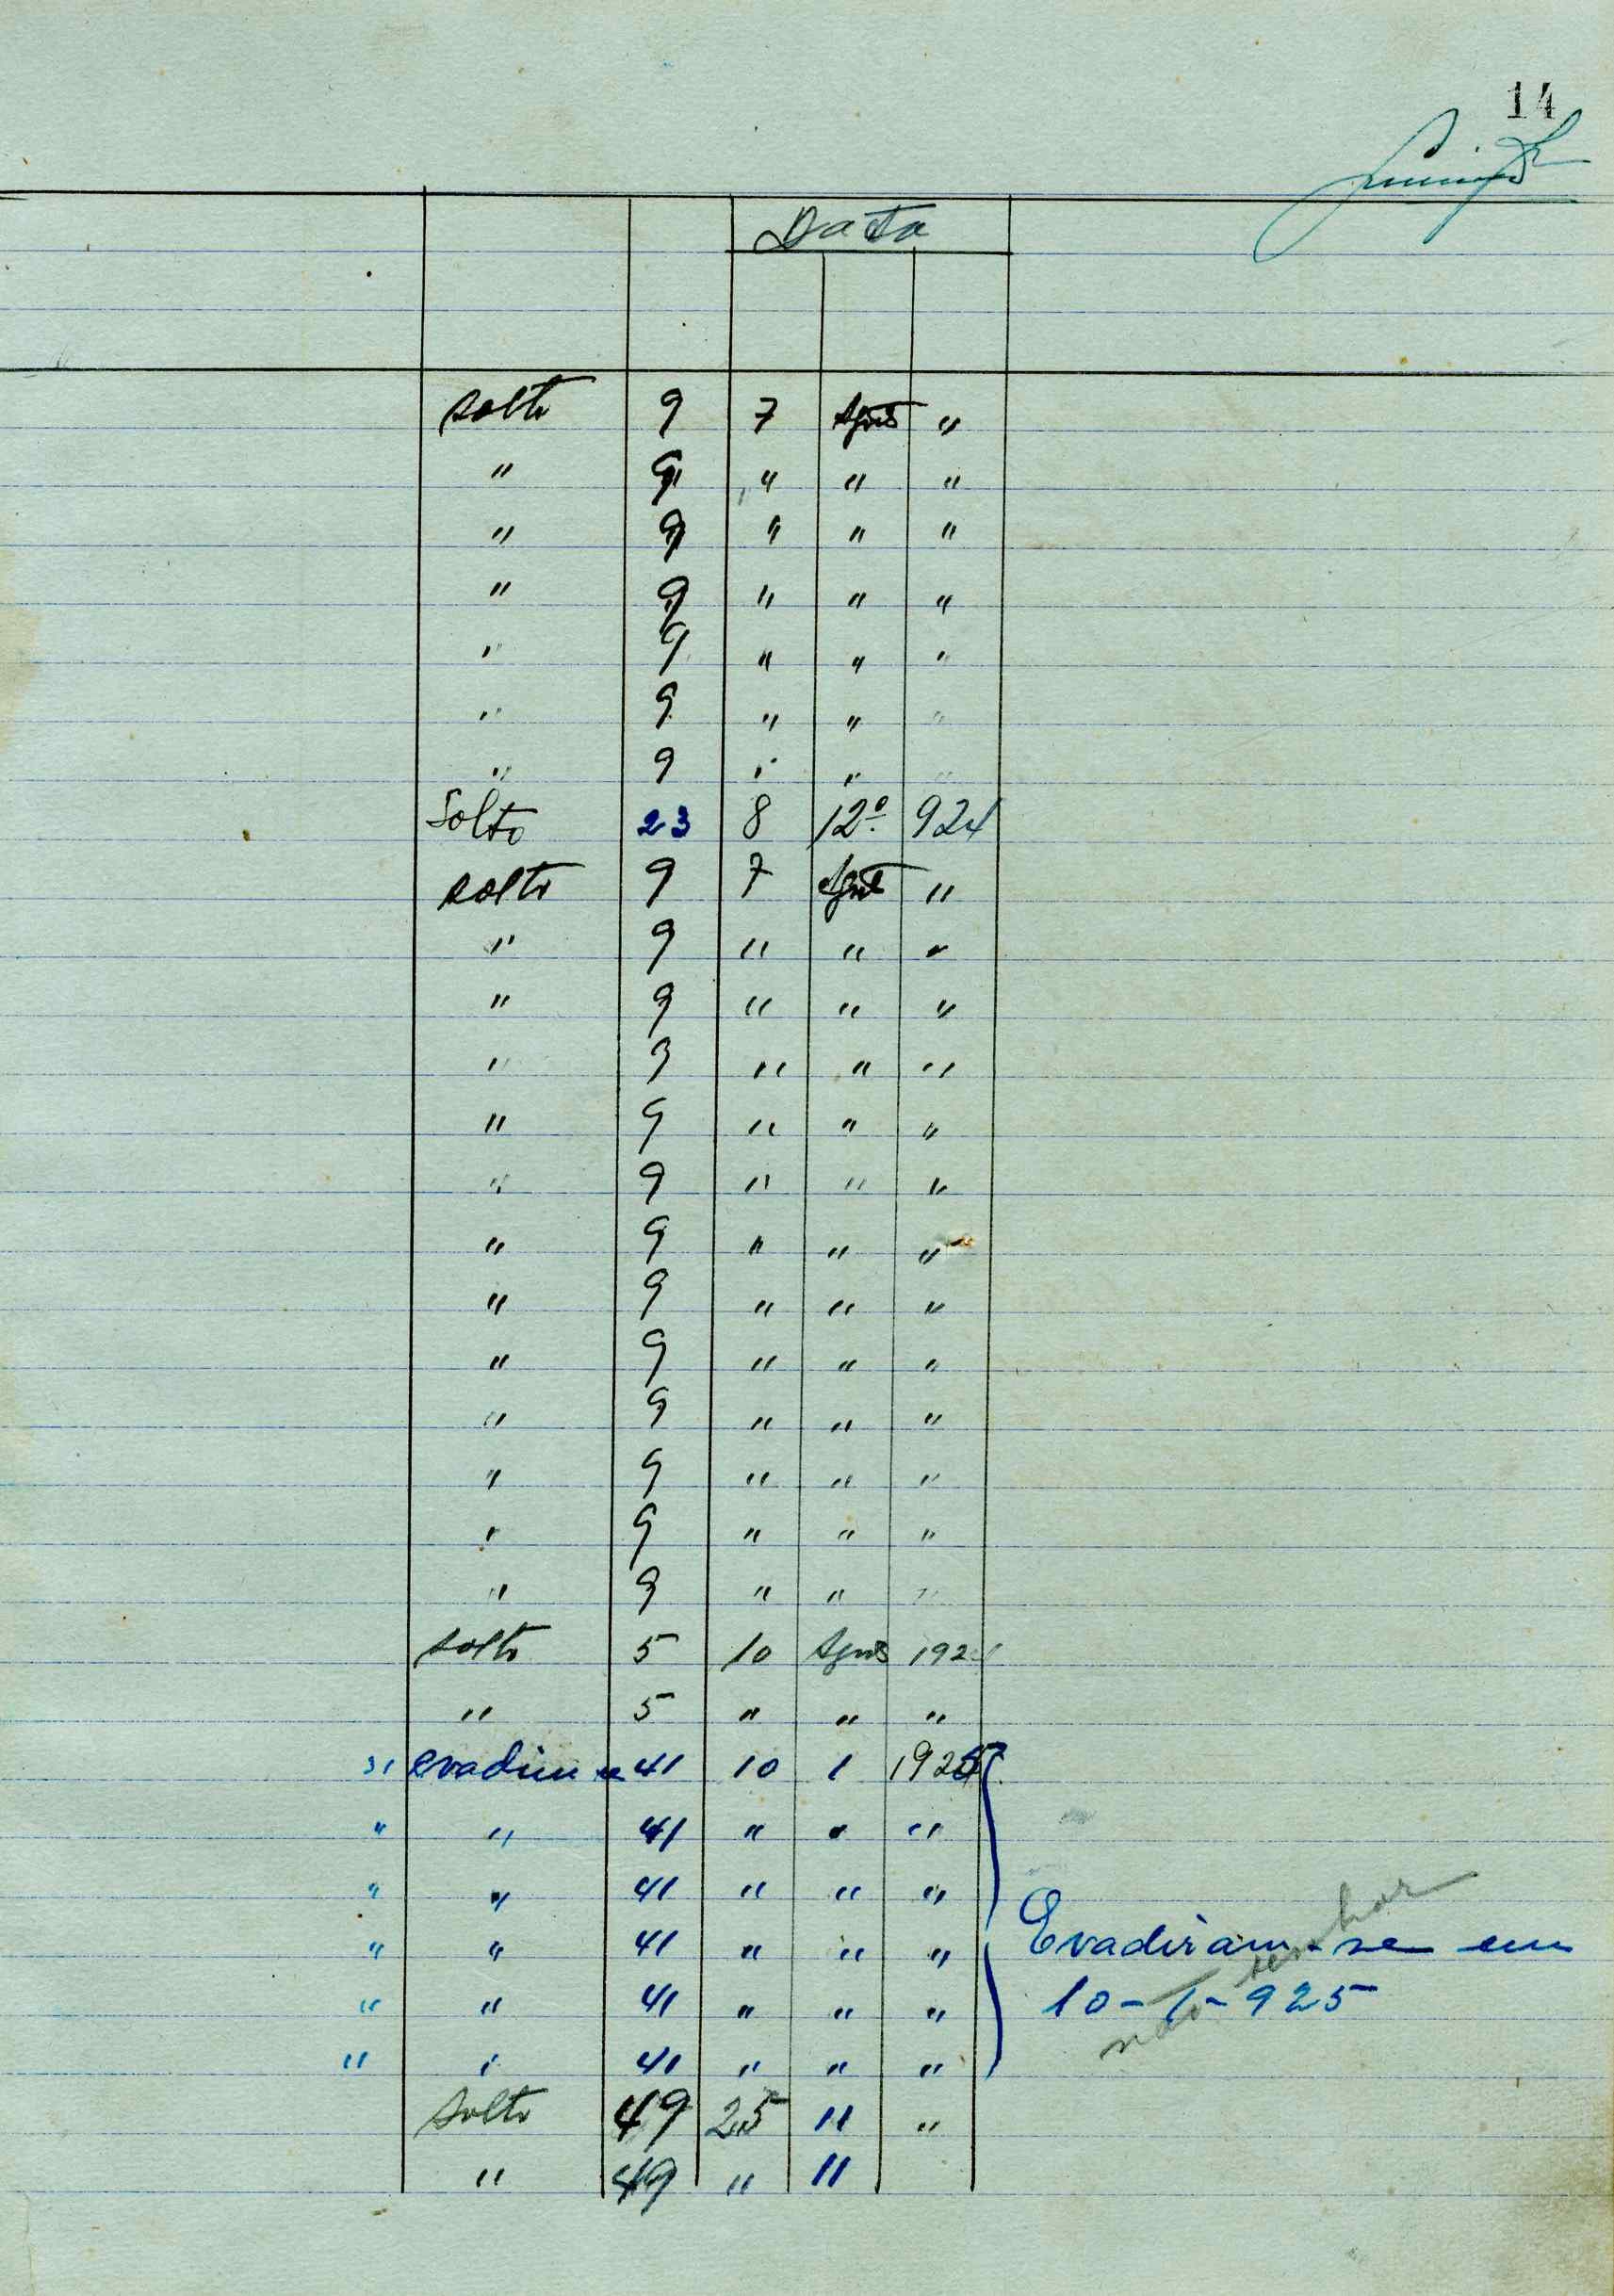 14
Data
solto 9 7 Agto "
" 9 " " "
" 9 " " "
" 9 " " "
" 9 " " "
" 9 " " "
" 9 " " "
Solto 23 8 12º 924
solto 9 7 Agto "
" 9 " " "
" 9 " " "
" 9 " " "
" 9 " " "
" 9 " " "
" 9 " " "
" 9 " " "
" 9 " " "
" 9 " " "
" 9 " " "
" 9 " " "
" 9 " " "
solto 5 10 Agto 192
" 5 " " "
31 evadiu se 41 10 1 1925
" " 41 " " "
" " 41 " " "
" " 41 " " " Evadiram-se em
" " 41 " " " 10-1-925
" " 41 " " " não
solto 49 25 11 "
" 49 " 11